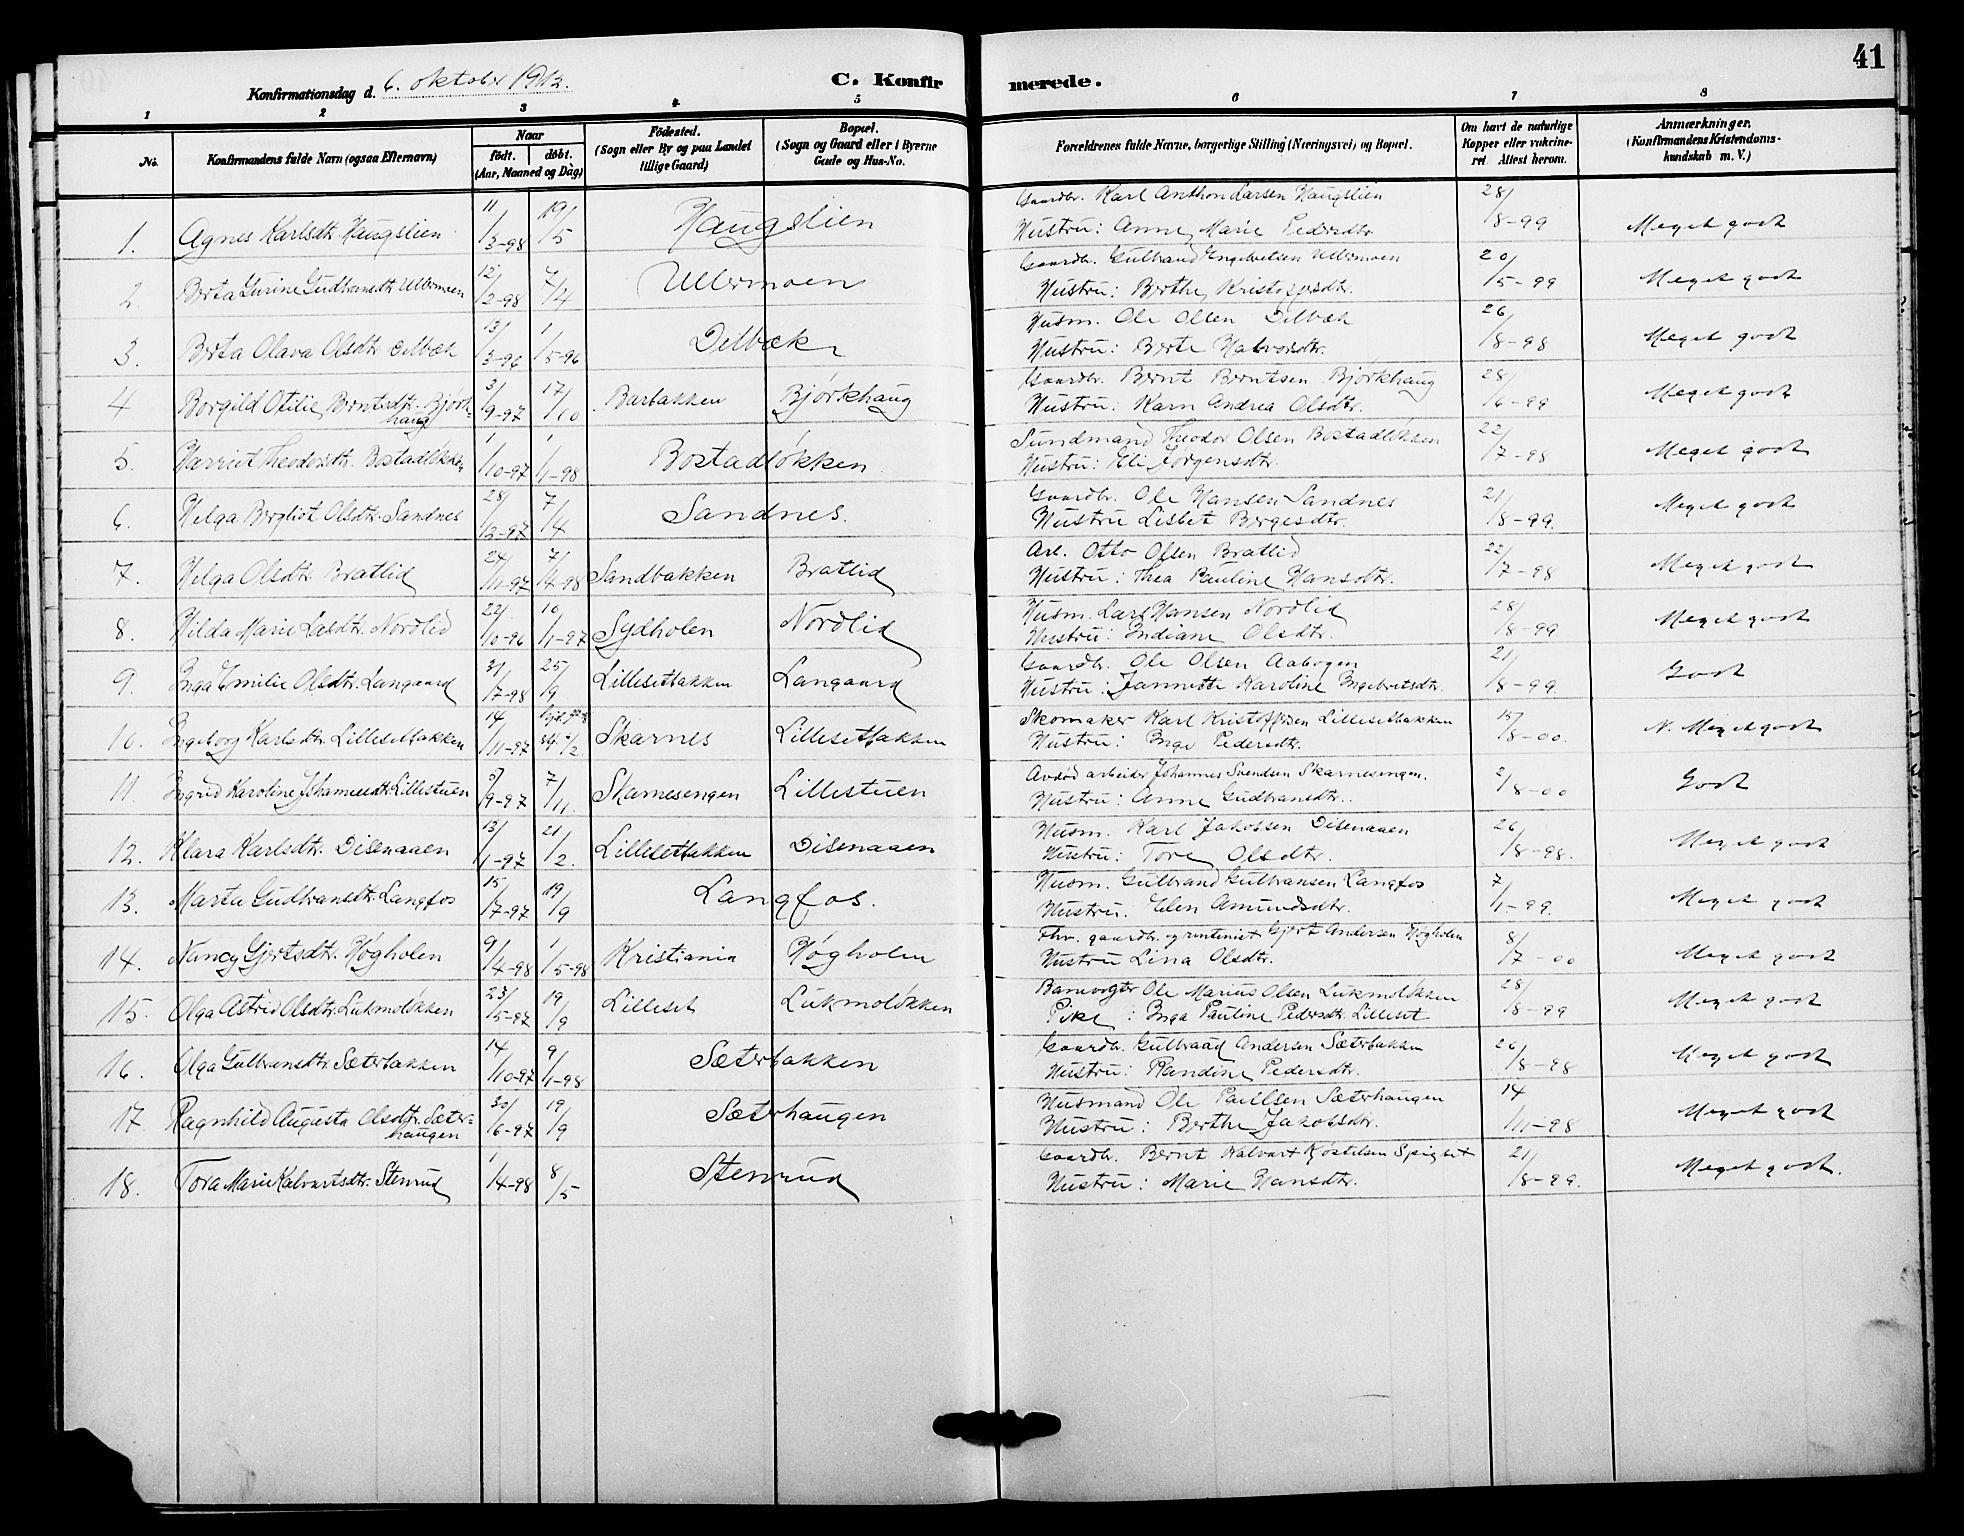 41
Konfirmationsdag d. 6. oktober 1912.
C. Konfirmerede.
1 2 3 4 5 6 7 8
No. Konfirmandens fulde Navn (ogsaa Efternavn) Naar født. døbt. (Aar, Maaned og Dag) Fødested. (Sogn eller By og paa Landet tillige Gaard) Bopæl. (Sogn og Gaard eller i Byerne Gade og Hus-No. Forældrenes fulde Navne, borgerlige Stilling (Næringsvei) og Bopæl. Om havt de naturlige Kopper eller vakcineret. Attest herom. Anmærkninger. (Konfirmandens Kristendomskundskab m. V.)
Gaardbr. Karl Anthon Larsen Haugslien
1. Agnes Karlsdtr. Haugslien 11/3-98 19/5 Haugslien Hustru: Anne Marie Pedersdtr. 28/8-99 Meget godt
Gaardbr. Gulbrand Engebretsen Ullermoen
2. Berta Gurine Gudbransdtr. Ullermoen 12/2-98 7/4 Ullermoen Hustru: Berthe Kristofersdtr. 20/5-99 Meget godt
Husm. Ole Olsen Delbæk
3. Berta Olava Olsdtr. Delbæk 13/3-96 1/5-96 Delbæk Hustru: Berte Halvorsdtr. 26/8-98 Meget godt
Gaardbr. Bernt Berntsen Bjørkhaug
4 Borgild Otilie Berntsdtr. Bjørkhaug 3/9-97 17/10 Barbakken Bjørkhaug Hustru: Karn Andrea Olsdtr. 28/6-99 Meget godt
Sundmand Theodor Olsen Bostadløkken
5. Harriet Theodorsdtr. Bostadløkken 1/10-97 1/1-98 Bostadløkken. Hustru: Eli Jørgensdtr. 22/7-98 Meget godt
Gaardbr. Ole Hansen Sandnes
6. Helga Bergliot Olsdtr. Sandnes 28/12-97 7/4 Sandnes. Hustru Lisbet Bergesdtr. 21/8-99. Meget godt
Arb. Otto Olsen Bratlid
7. Helga Olsdtr. Bratlid 24/11-97 7/4-98 Sandbakken Bratlid Hustru: Thea Pauline Hansdtr. 22/7-98 Meget godt
Husm. Lars Hansen Nordlid
8. Hilda Marie Lasdtr. Nordlid 22/10-96 10/1-97 Sydholen Nordlid Hustru: Indiane Olsdtr. 28/8-99 Meget godt
Gaardbr. Ole Olsen Aabogen
9. Inga Emilie Olsdtr. Langaard 31/7-98 25/9 Lillesetbakken Langaard Hustru: Jannette Karoline Ingebretsdtr. 21/8-99. Godt
Skomaker Karl Kristoffersen Lillesetbakken
10. Ingeborg Karlsdtr. Lillesetbakken 14/11-97 Skarnes Lillesetbakken Hustru: Inge Pedersdtr. 15/8-00. N. Meget godt
Avdød arbeider Johannes Svendsen Skarnesengen.
11. Ingrid Karoline Johannesdtr. Lillestuen 9-97 7/11. Skarnesengen Lillestuen Hustru: Anne Gudbransdtr. 2/8-00 Godt
Husm. Karl Jakobsen Disenaaen
12. Klara Karlsdtr. Disenaaen 13/1-97 21/2. Lillesetbakken Disenaaen Hustru: Tore Olsdtr. 26/8-98. Meget godt
Husm. Gulbrand Gulbransen Langfos
13. Marta Gudbransdtr. Langfos 15/7-97 19/9 Langfos. Hustru. Elen Amundsdtr. 7/1-99. Meget godt
Fhv. gaardbr. og rentenist Gjert Andersen Høgholen
14. Nancy Gjertsdtr. Høgholen 9/4-98 1/5-98 Kristiania Høgholen Hustru Lina Olsdtr. 8/7-00 Meget godt
Banevogter Ole Marius Olsen Lukmoløkken
15. Olga Astrid Olsdtr. Lukmoløkken 23/5-97 19/9 Lilleset Lukmoløkken Pike: Inga Pauline Pedersdtr. Lilleset 28/8-99 Meget godt
Gaardbr. Gulbrand Andersen Sæterbakken
16. Olga Gulbransdtr. Sæterbakken 14/10-97 9/1-98 Sæterbakken Hustru: Randine Pedersdtr. 26/8-98 Meget godt
Husmand Ole Paulsen Sæterhaugen
17. Ragnhild Augusta Olsdtr. Sæterhaugen 30/6-97 19/9 Sæterhaugen Hustru: Berthe Jakobsdtr. 14/11-98 Meget godt
Gaardbr. Bernt Halvart Kjøstelsen Spigset
18. Tora Marie Halvartsdtr. Stenrud 1/4-98 8/5 Stenrud Hustru: Marie Hansdtr. 21/8-99. Meget godt.